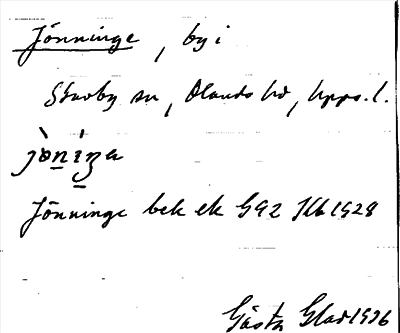 Jönninge, by i
Skäfby sn, Olands hd, Upps. l.
Jönninge bek ek G92 Hlb 1928
Gösta Glad 1936